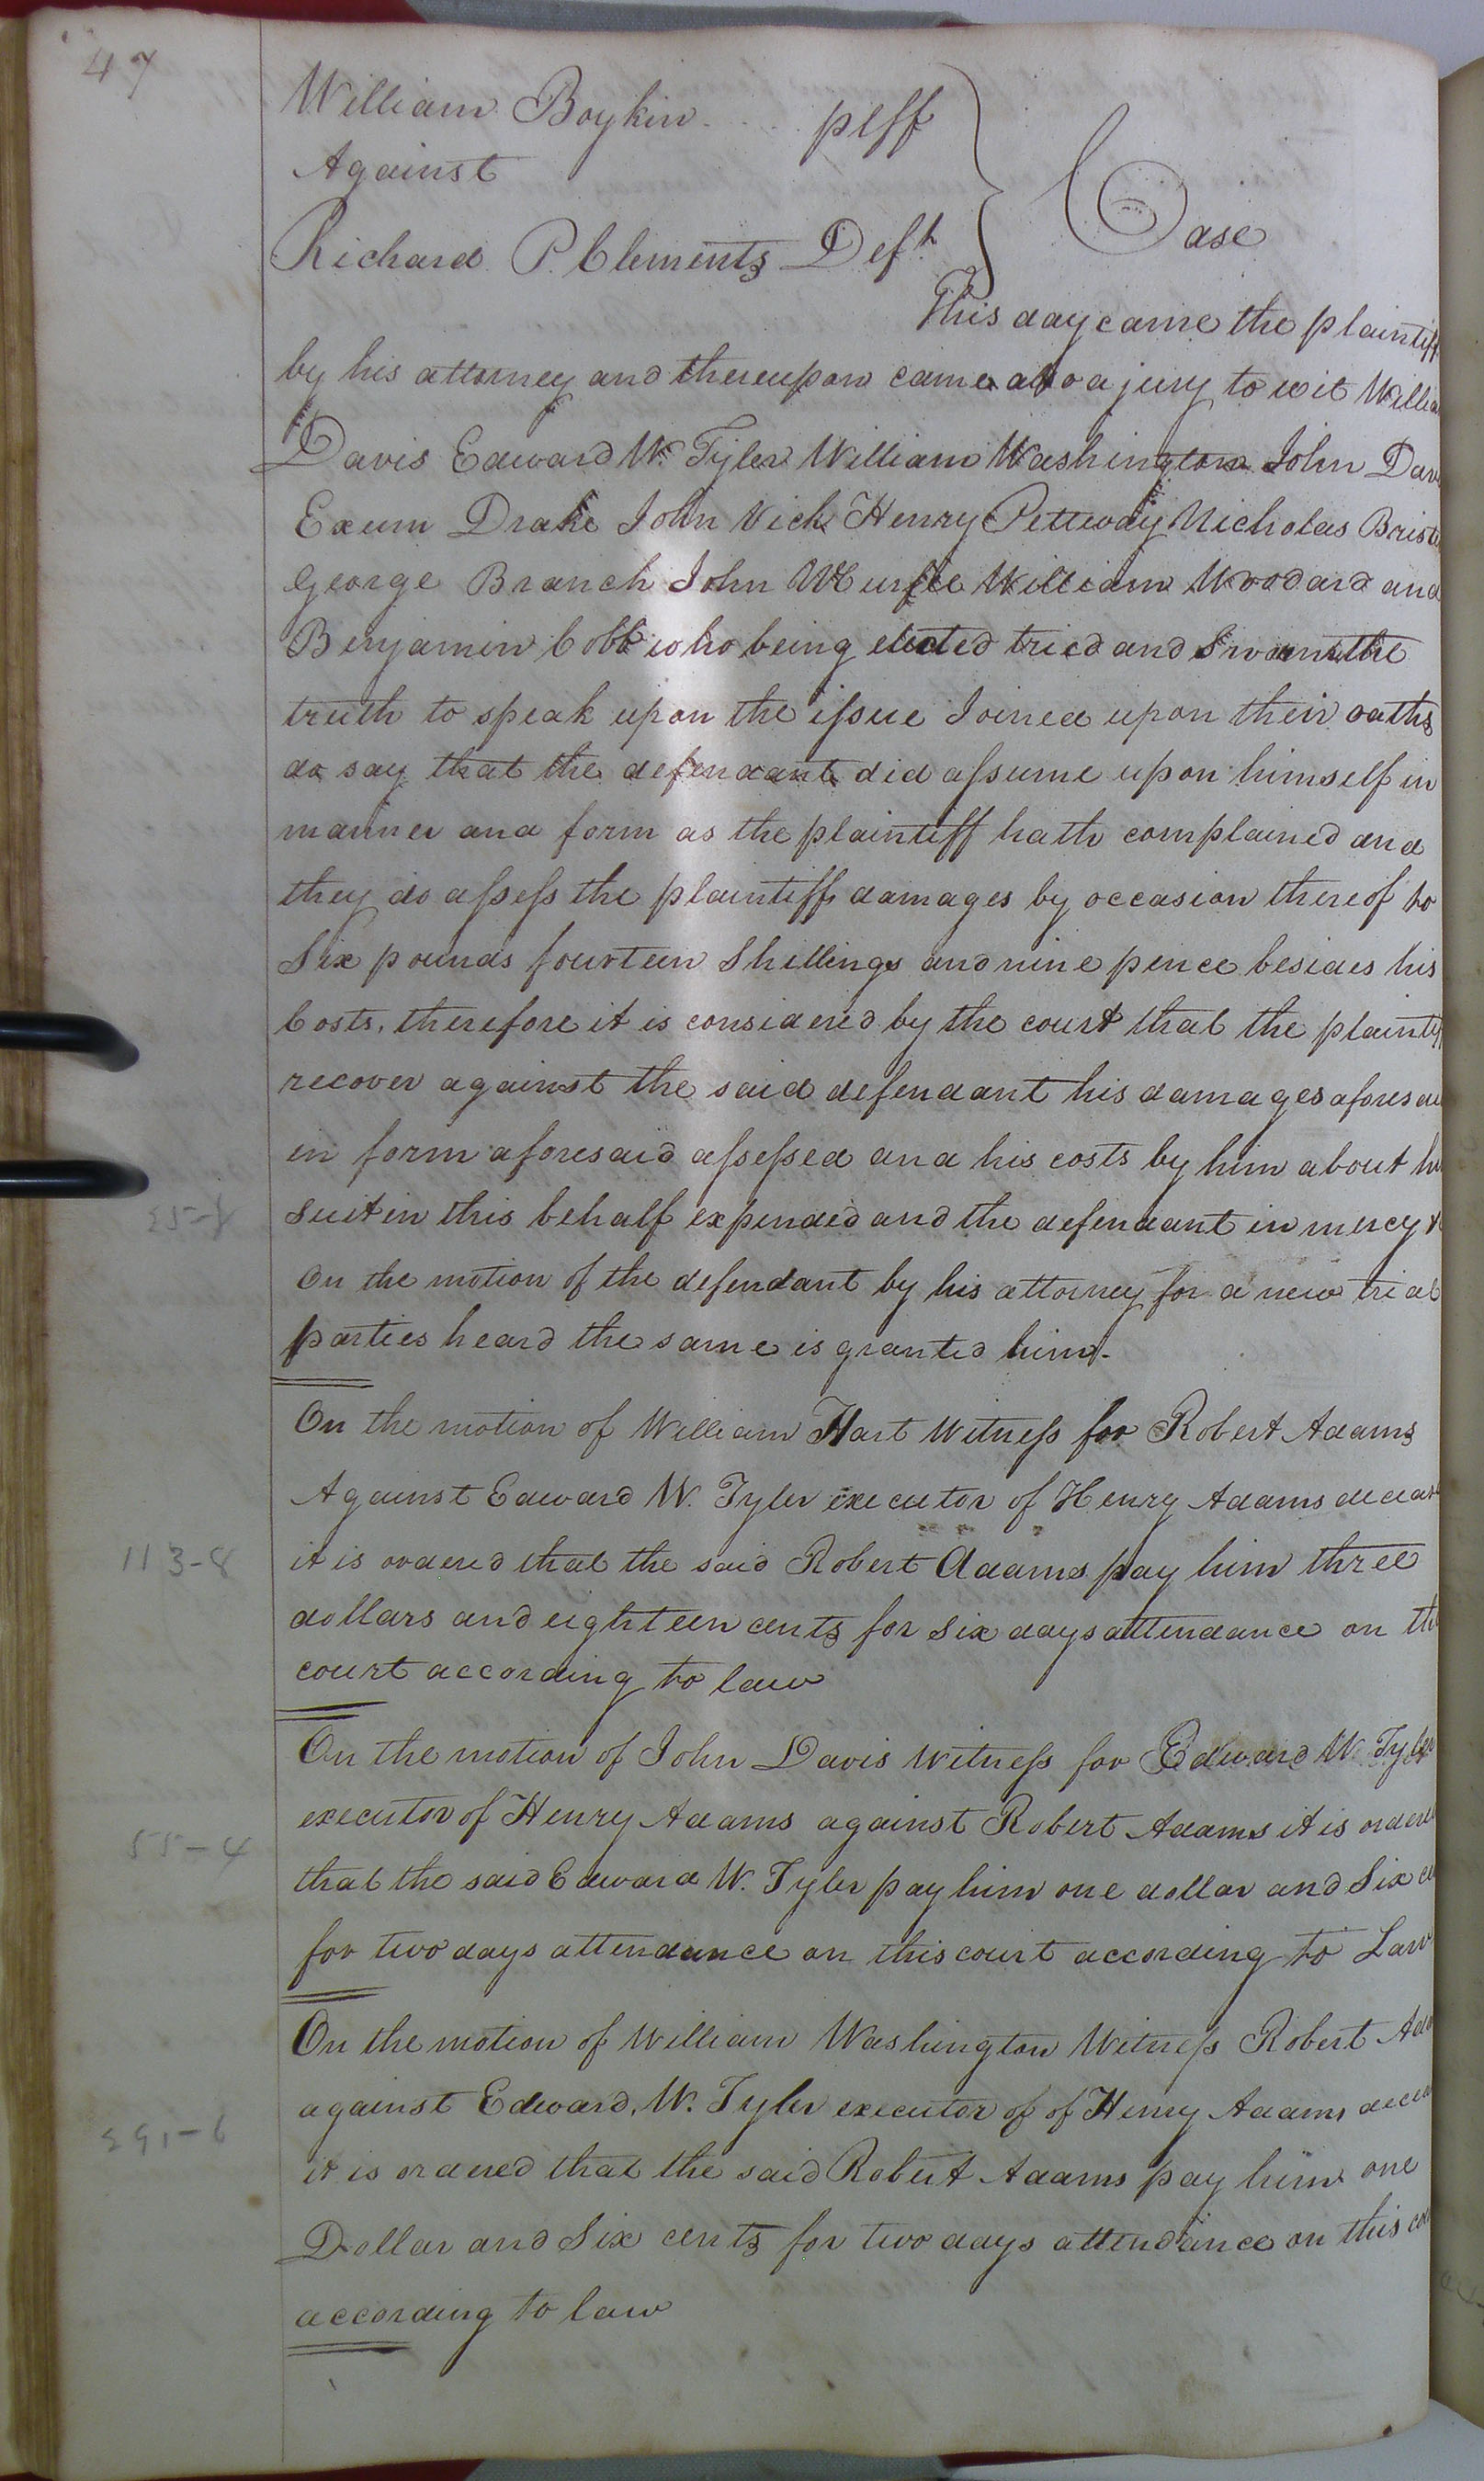 47
William Boykin plff
Against
Richard P. Clements Deft
Case
This day came the plaintiff
by his attorney and thereupon came also a jury to wit William
Davis Edward W. Tyler William Washington John Davis
Exum Drake John Vick Henry Pettway Nicholas
George Branch John William Woodard and
Benjamin Cobb who being elected tried and Sworn the
truth to speak upon the issue Joined upon their oaths
do say that the defendant did assume upon himself in
manner and form as the plaintiff hath complained and
they do assess the plaintiff damages by occasion thereof to
Six pounds fourteen Shillings and nine pence besides his
Costs, therefore it is considered by the court that the plaintiff
recover against the said defendant his damages aforesaid
in form aforesaid assessed and his costs by him about his
Suit in this behalf expended and the defendant in mercy &
On the motion of the defendant by his attorney for a new trial
parties heard the same is granted him.
On the motion of William Hart Witness for Robert Adams
Against Edward W. Tyler executor of Henry Adams deceas
113-8
it is ordered that the said Robert Adams pay him three
dollars and eighteen cents for Six days attendance on the
court according to law
On the motion of John Davis Witness for Edward W. Tyler
executor of Henry Adams against Robert Adams it is ordered
55-4
that the said Edward W. Tyler pay him one dollar and Six
for two days attendance on this court according to Law
On the motion of William Washington Witness Robert Adams
against Edward. W. Tyler executor of of Henry Adams decea
it is ordered that the said Robert Adams pay him one
Dollar and Six cents for two days attendance on this
according to law